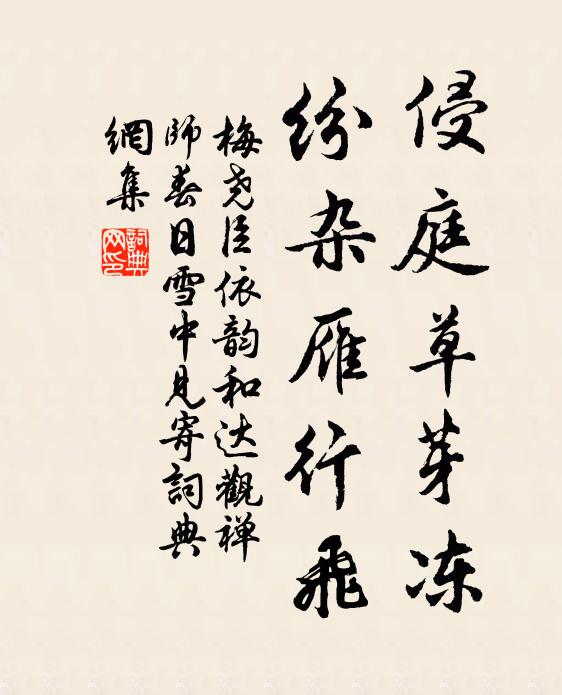 侵庭草芽冻
纷杂雁行飛
梅尧臣依韵和达觀禅
師春日雪中見寄詞典
網集
詞典
网印